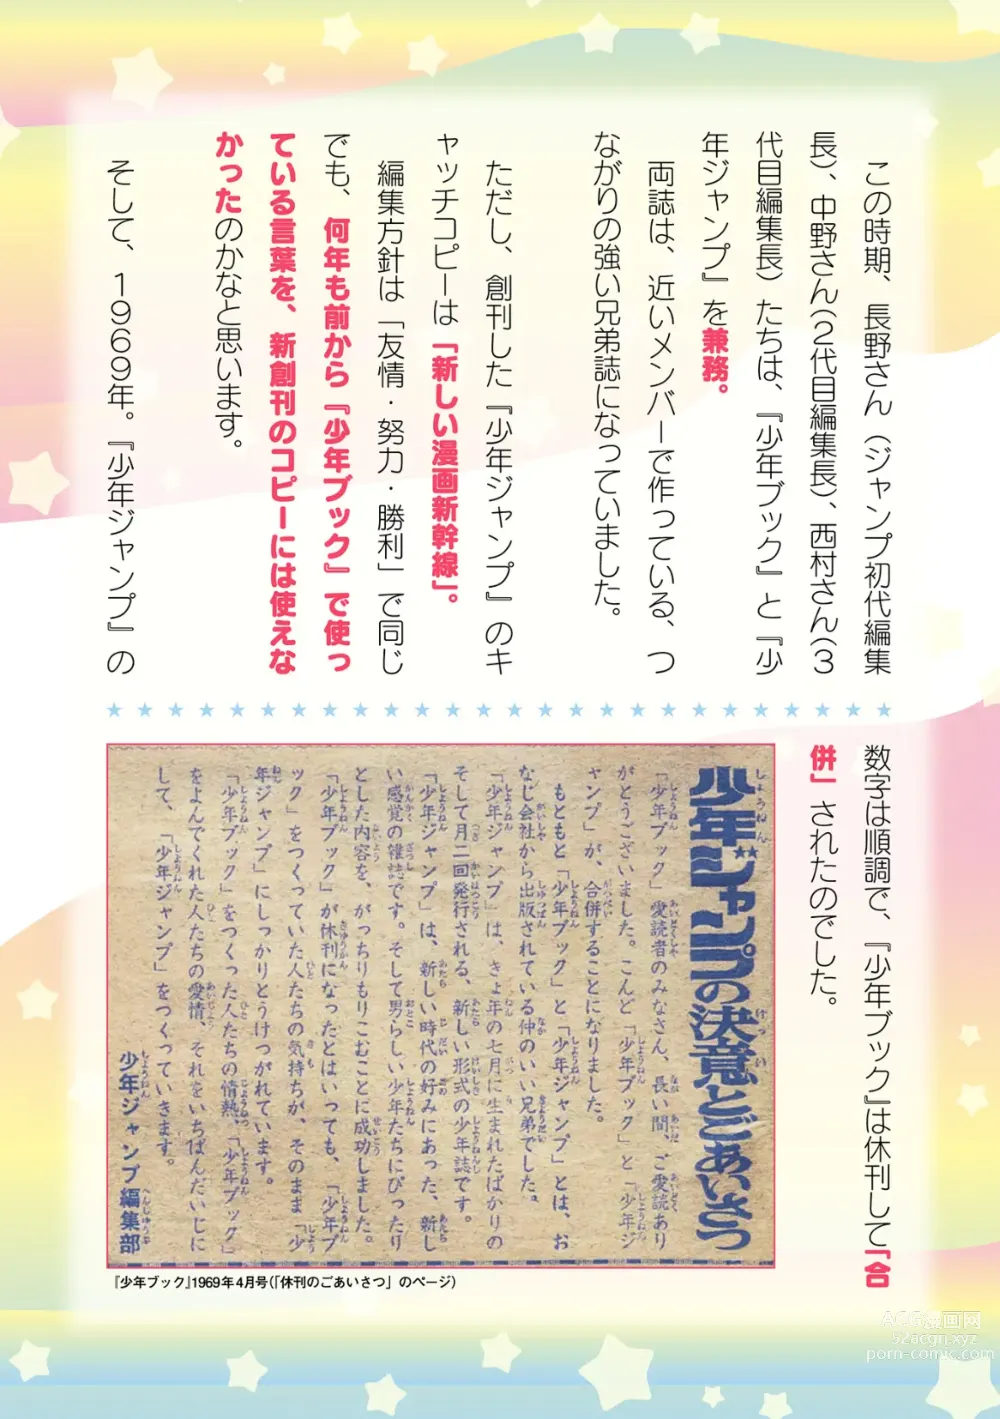 この時期、長野さん（ジャンプ初代編集
長）、中野さん（２代目編集長）、西村さん（３
代目編集長）たちは、『少年ブック』と『少
年ジャンプ』を兼務。
両誌は、近いメンバーで作っている、つ
ながりの強い兄弟誌になっていました。
ただし、創刊した『少年ジャンプ』のキ
ャッチコピーは「新しい漫画新幹線」。
編集方針は「友情・努力・勝利」で同じ
でも、何年も前から『少年ブック』で使っ
ている言葉を、新創刊のコピーには使えな
かったのかなと思います。
そして、１９６９年。『少年ジャンプ』の
数字は順調で、『少年ブック』は休刊して「合
併」されたのでした。
少年ジャンプの決意とごあいさつ
「少年ブック」愛読者のみなさん、長い間、ご愛読あり
がとうございました。こんど「少年ブック」と「少年ジ
ャンプ」が、合併することになりました。
もともと「少年ブック」と「少年ジャンプ」とは、お
なじ会社から出版されている仲のいい兄弟でした。
「少年ジャンプ」は、きょ年の七月に生まれたばかりの
そして月二回発行される、新しい形式の少年誌です。
「少年ジャンプ」は、新しい時代の好みにあった、新し
い感覚の雑誌です。そして男らしい少年たちにぴったり
とした内容を、がっちりもりこむことに成功しました。
「少年ブック」が休刊になったとはいっても、「少年ブ
ック」をつくっていた人たちの気持ちが、そのまま「少
年ジャンプ」にしっかりとうけつがれています。
「少年ブック」をつくった人たちの情熱、「少年ブック」
をよんでくれた人たちの愛情、それをいちばんだいじに
して、「少年ジャンプ」をつくっていきます。
少年ジャンプ編集部
『少年ブック』1969年4月号（「休刊のごあいさつ」のページ）
ACG漫画网
52acgn.xyz
porn-comic.com